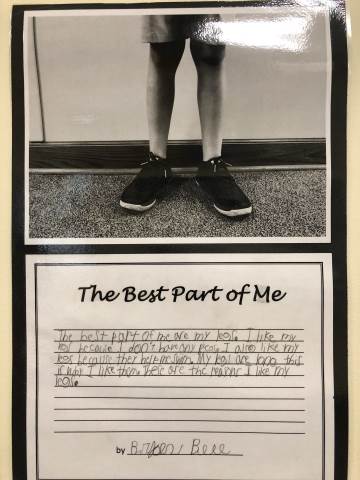 The Best Part of Me
The best part of me are my legs. I like my
legs because I don't have any I also like my
legs because they help me swim. My legs are long this
is why I like them. These are the reasons I like my
legs.
by